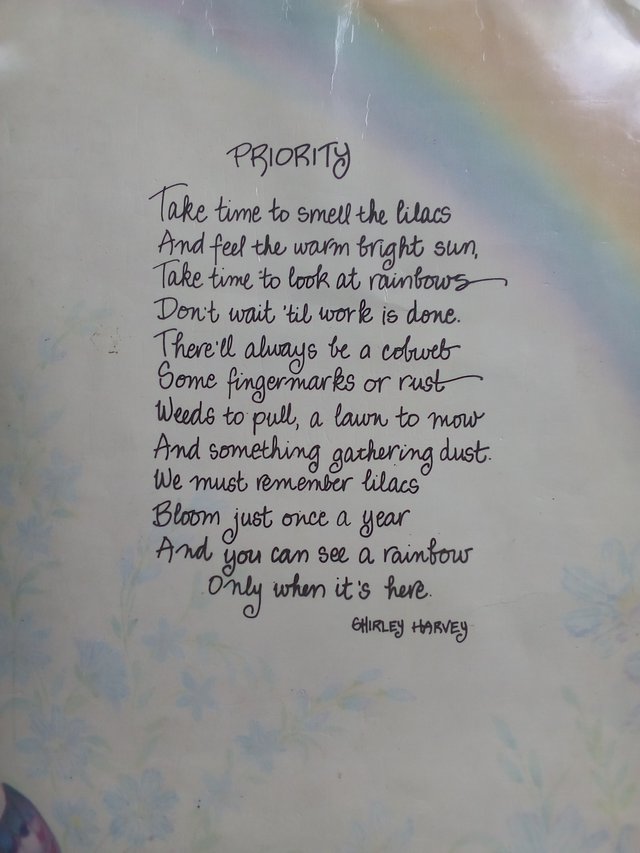 PRIORITY
Take time to smell the lilacs
And feel the warm bright sun,
Take time to look at rainbows
Don't wait 'til work is done.
There'll always be a cobweb
Some fingermarks or rust
Weeds to pull, a lawn to mow
And something gathering dust.
We must remember lilacs
Bloom just once a year
And you can see a rainbow
Only when it's here.
SHIRLEY HARVEY